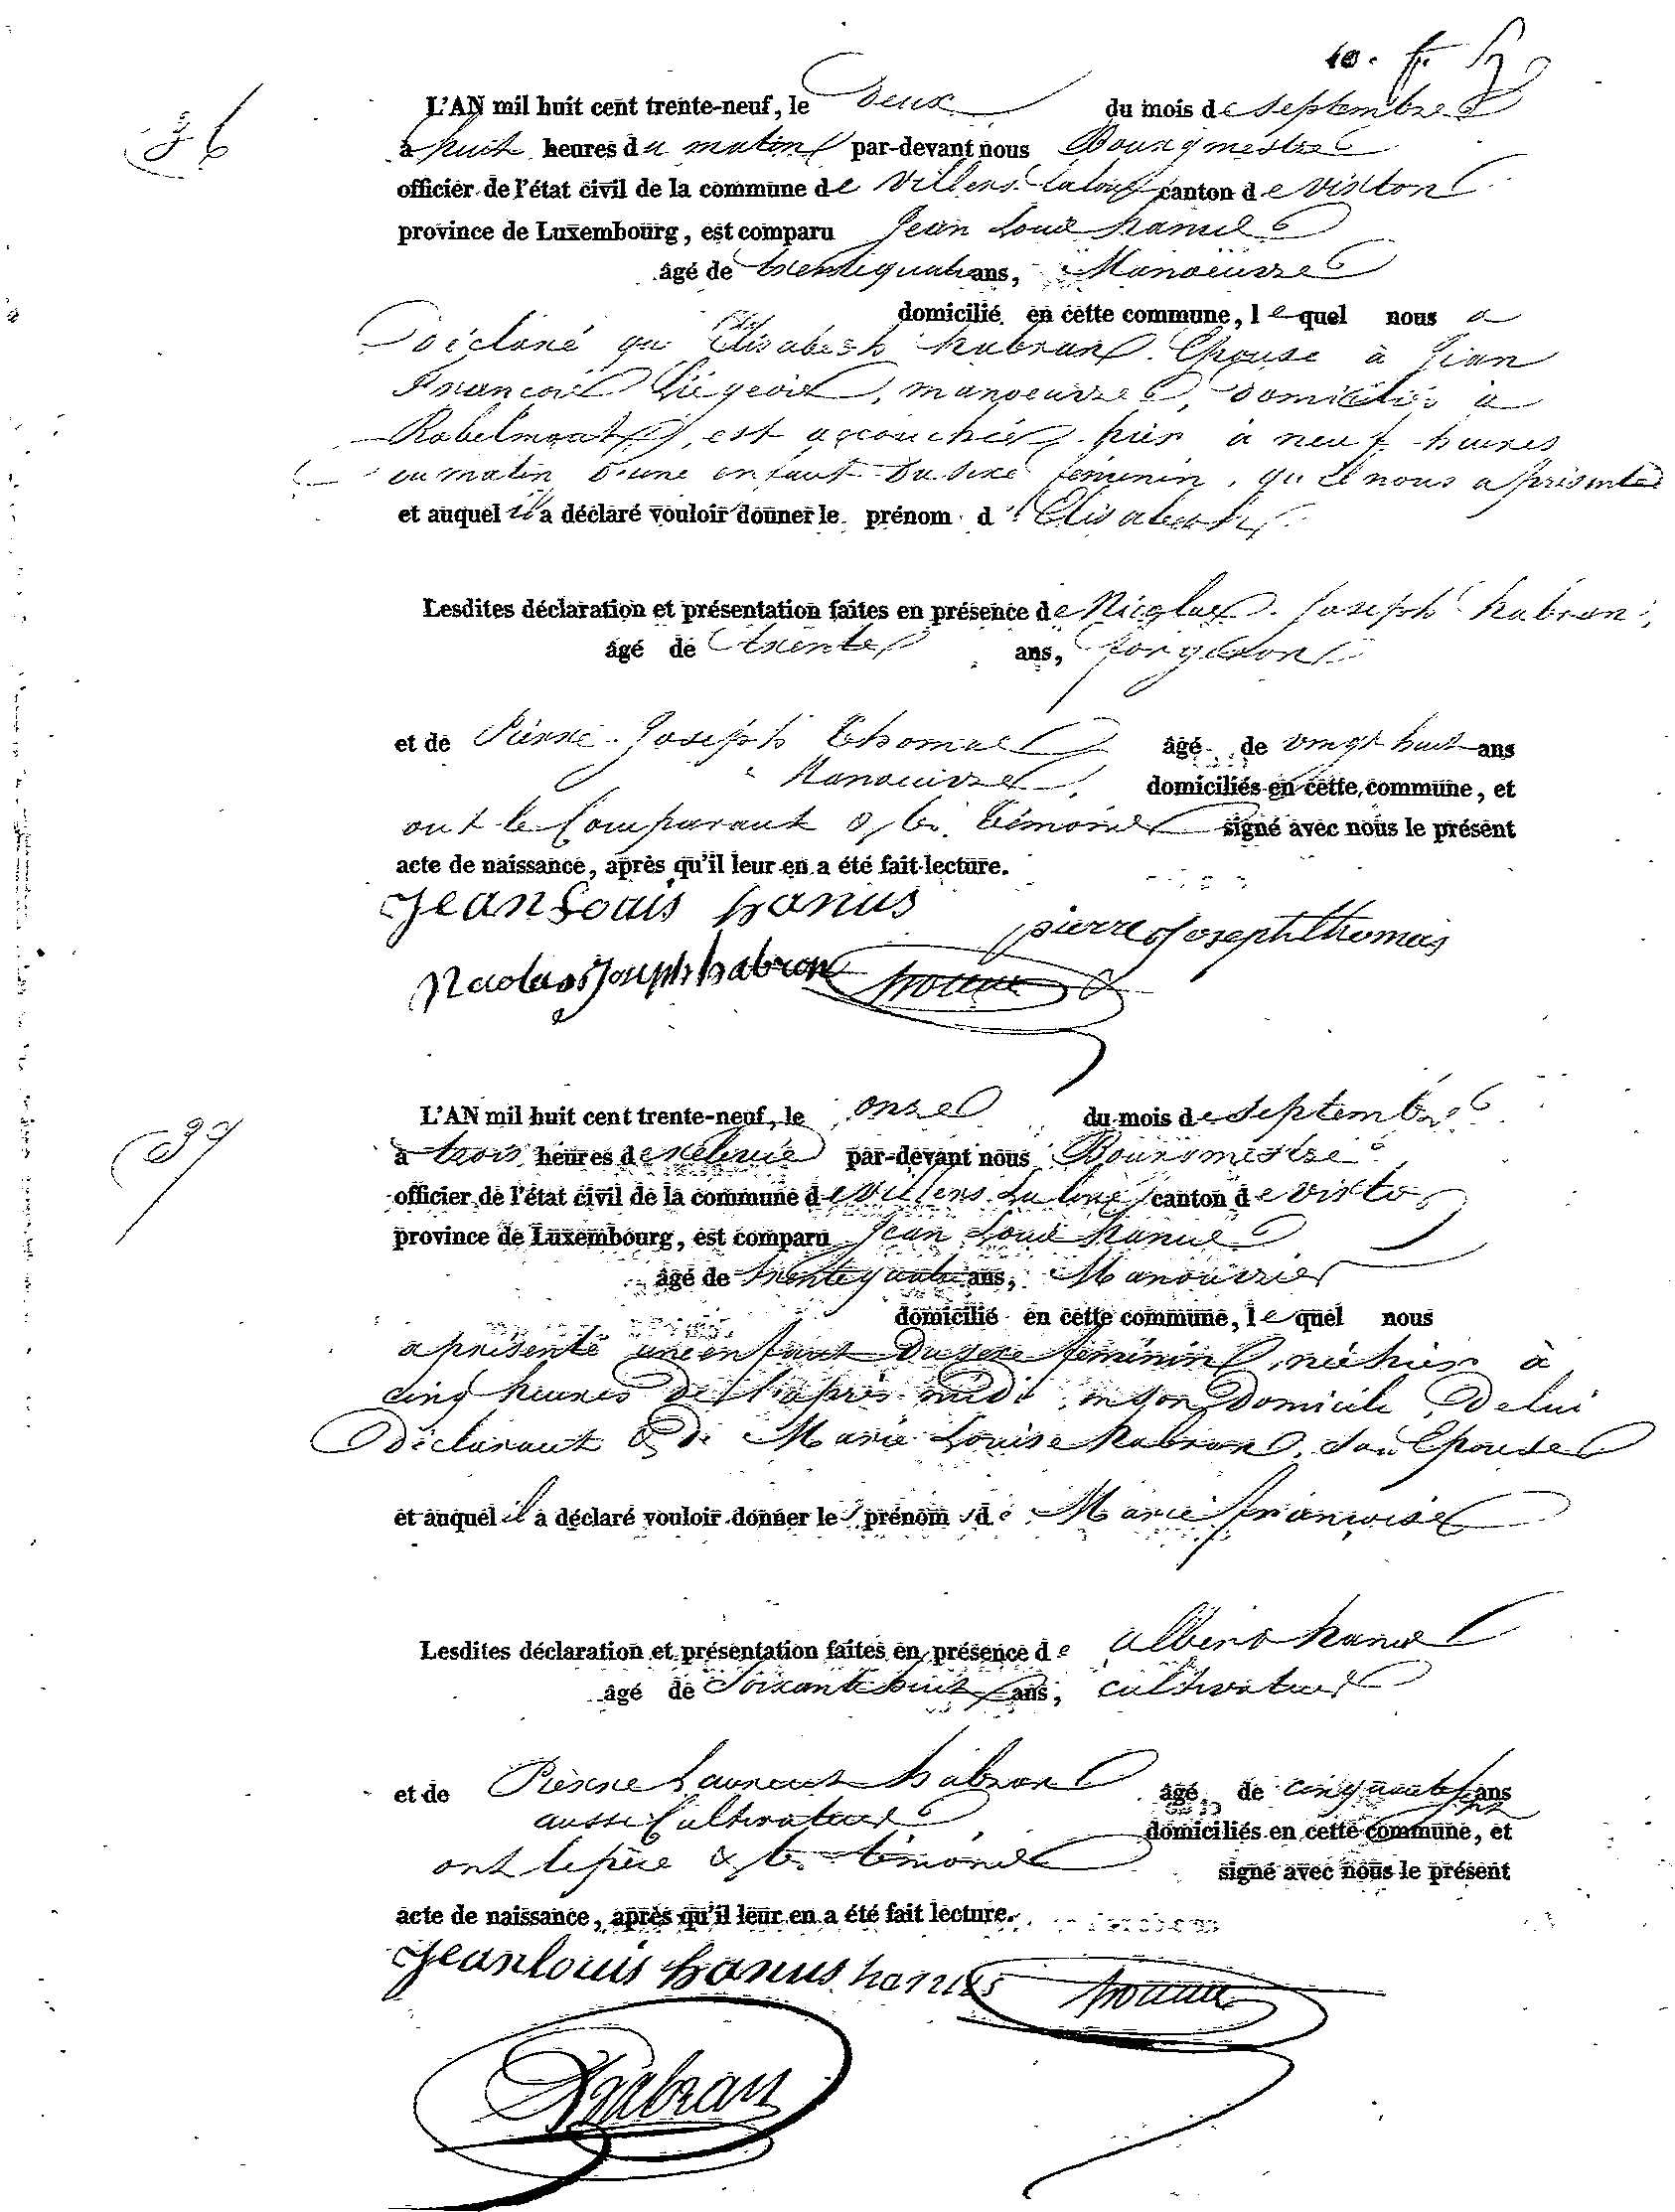 10. f.
36
L'AN mil huit cent trente-neuf, le deux du mois de septembre
à huit heures du matin par-devant nous Bourgmestre
officier de l'état civil de la commune de Villers-laloue canton de virton
province de Luxembourg, est comparu Jean Louis hanus
âgé de trentequatre ans, Manoeuvre
domicilié en cette commune, lequel nous a
déclaré qu'Elisabeth habran Epouse à Jean
François Liégeois, manoeuvre, domiciliés à
Robelmont, est accouchée hier à neuf heures
du matin d'une enfant du sexe féminin, qu'il nous a présenté
et auquel il a déclaré vouloir donner le prénom d'Elisabeth
Lesdites déclaration et présentation faites en présence de Nicolas Joseph habran,
âgé de trente ans, forgeron
et de Pierre Joseph Thomas âgé de vingt huit ans
Manoeuvre domiciliés en cette commune, et
ont le Comparant & les Témoins signé avec nous le présent
acte de naissance, après qu'il leur en a été fait lecture.
Jean Louis hanus
pierre Joseph thomas
Nicolas Joseph habran
37
L'AN mil huit cent trente-neuf, le onze du mois de septembre
à trois heures de relevée par-devant nous Bourgmestre
officier de l'état civil de la commune de Villers-laloue canton de virton
province de Luxembourg, est comparu Jean Louis hanus
âgé de trentequatre ans, Manouvrier
domicilié en cette commune, lequel nous
a présenté une enfant du sexe féminin, née hier à
cinq heures de l'après midi, en son Domicile, De lui
Déclarant & de Marie Louise habran, son Epouse
et auquel il a déclaré vouloir donner le prénom de Marie françoise
Lesdites déclaration et présentation faites en présence de albert hanus
âgé de soixante huit ans, cultivateur
et de Pierre Laurent habran âgé de cinquante sept ans
aussi Cultivateur domiciliés en cette commune, et
ont le père & les témoins signé avec nous le présent
acte de naissance, après qu'il leur en a été fait lecture.
Jean louis hanus hanus
habran